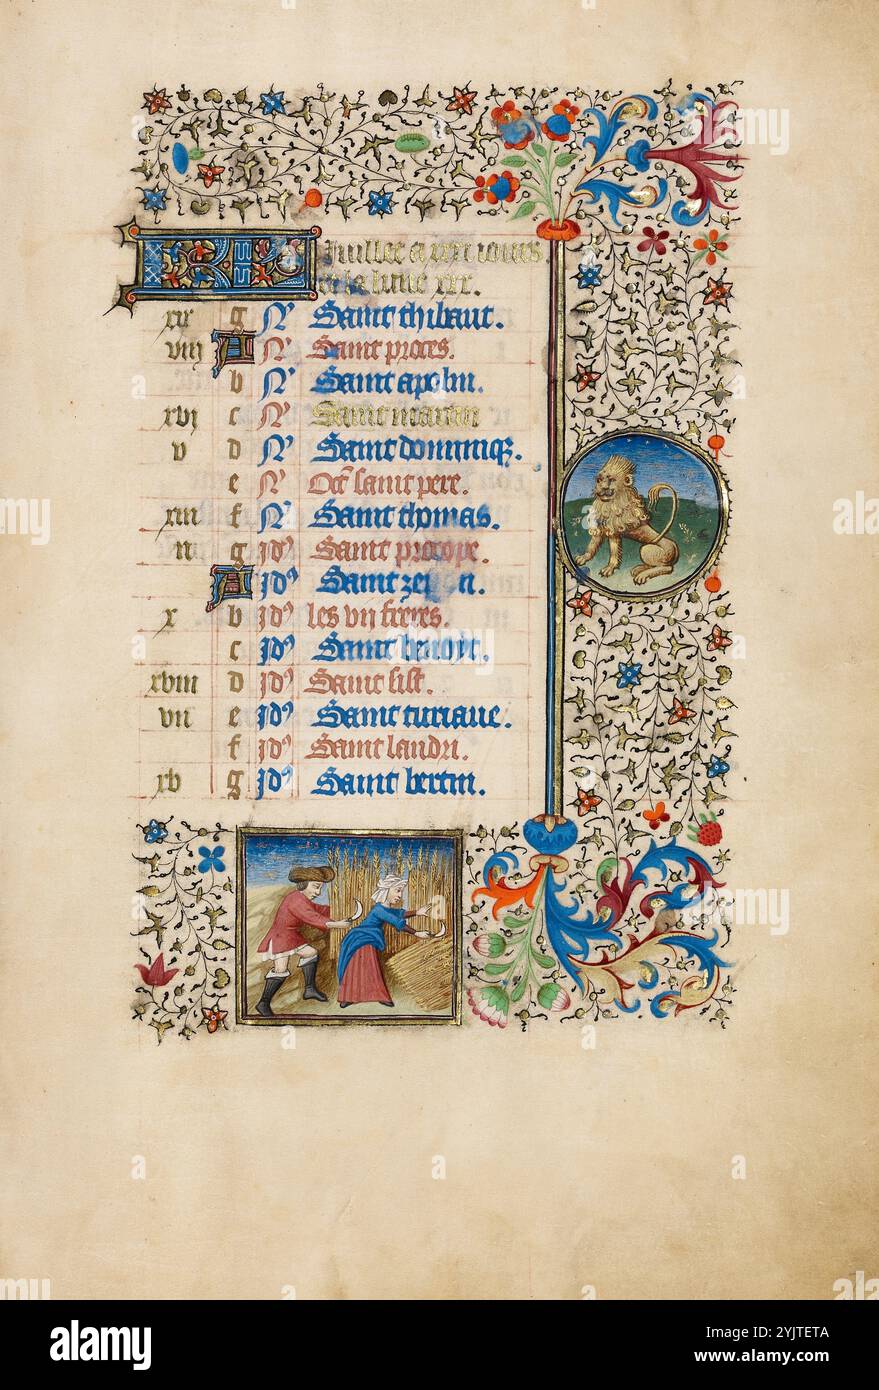 KL Juillet a xxxi iours.
Et la lune xxx.
xix g N' Saint thibaut.
viii A N' Saint proces.
b N' Saint apolin.
xvi c N' Saint martin
v d N' Saint dominiq.
e N' Oct saint pere.
xiii f N' Saint thomas.
ii g id' Saint procope.
A id' Saint
x b id' les vii freres.
c id' Saint benoyt.
xviii d id' Saint sist.
vii e id' Saint turiaue.
f id' Saint landri.
xv g id' Saint bertin.
a
alamy
alamy
Image ID: 2YJTETA
www.alamy.com